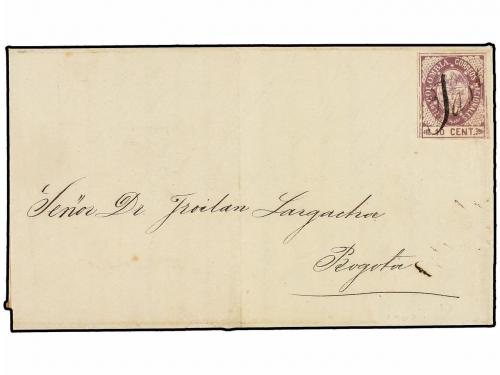 COLOMBIA CORREOS NACIONALES
10 CENT.
Señor Dr. Froilan Largacha
Bogota